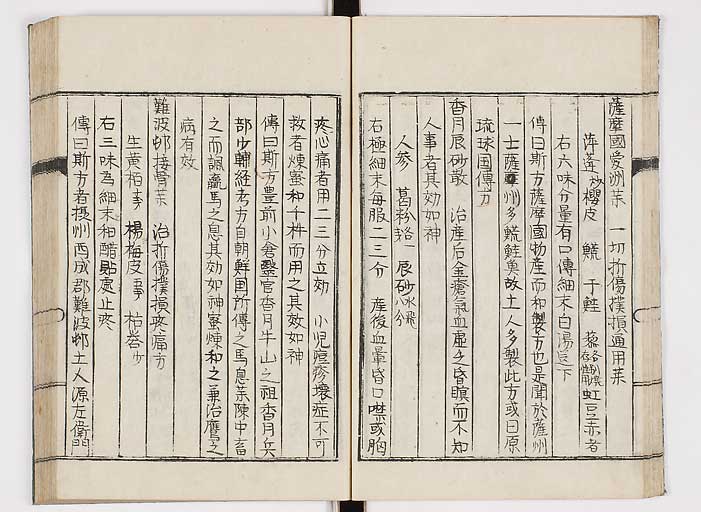 薩摩國愛洲藥 一切折傷撲損通用藥
萍蓬炒 櫻皮 鱵 于鮭 虹豆赤者
右六味分量有口傳細末白湯下
傳曰斯方薩摩國物産而和製方也是聞於薩州
一士薩州多鱵鮭臭故土人多製此方或曰原
琉球国傳方
香月辰砂散 治産后金瘡氣血虚之昏瞑而不知
人事者其効如神
人參 葛粉各一 辰砂水飛八分
右極細末毎服二三分 産後血暈昏口噤或胸
疼心痛者用二三分立効 小児痘疹壊症不可
救者煉蜜和千杵而用之其效如神
傳曰斯方豊前小倉醫官香月牛山之祖香月兵
部少輔経考方自朝鮮国所傳之馬息藥陳中畜
之而諷羸馬之息其効如神蜜煉和之兼治鷹之
病有效
難波邨接骨藥 治折傷撲損疼痛方
生黄栢 楊梅皮 少
右三味為細末和醋貼處止疼
傳曰斯方者摂州西成郡難波邨土人源左衛門